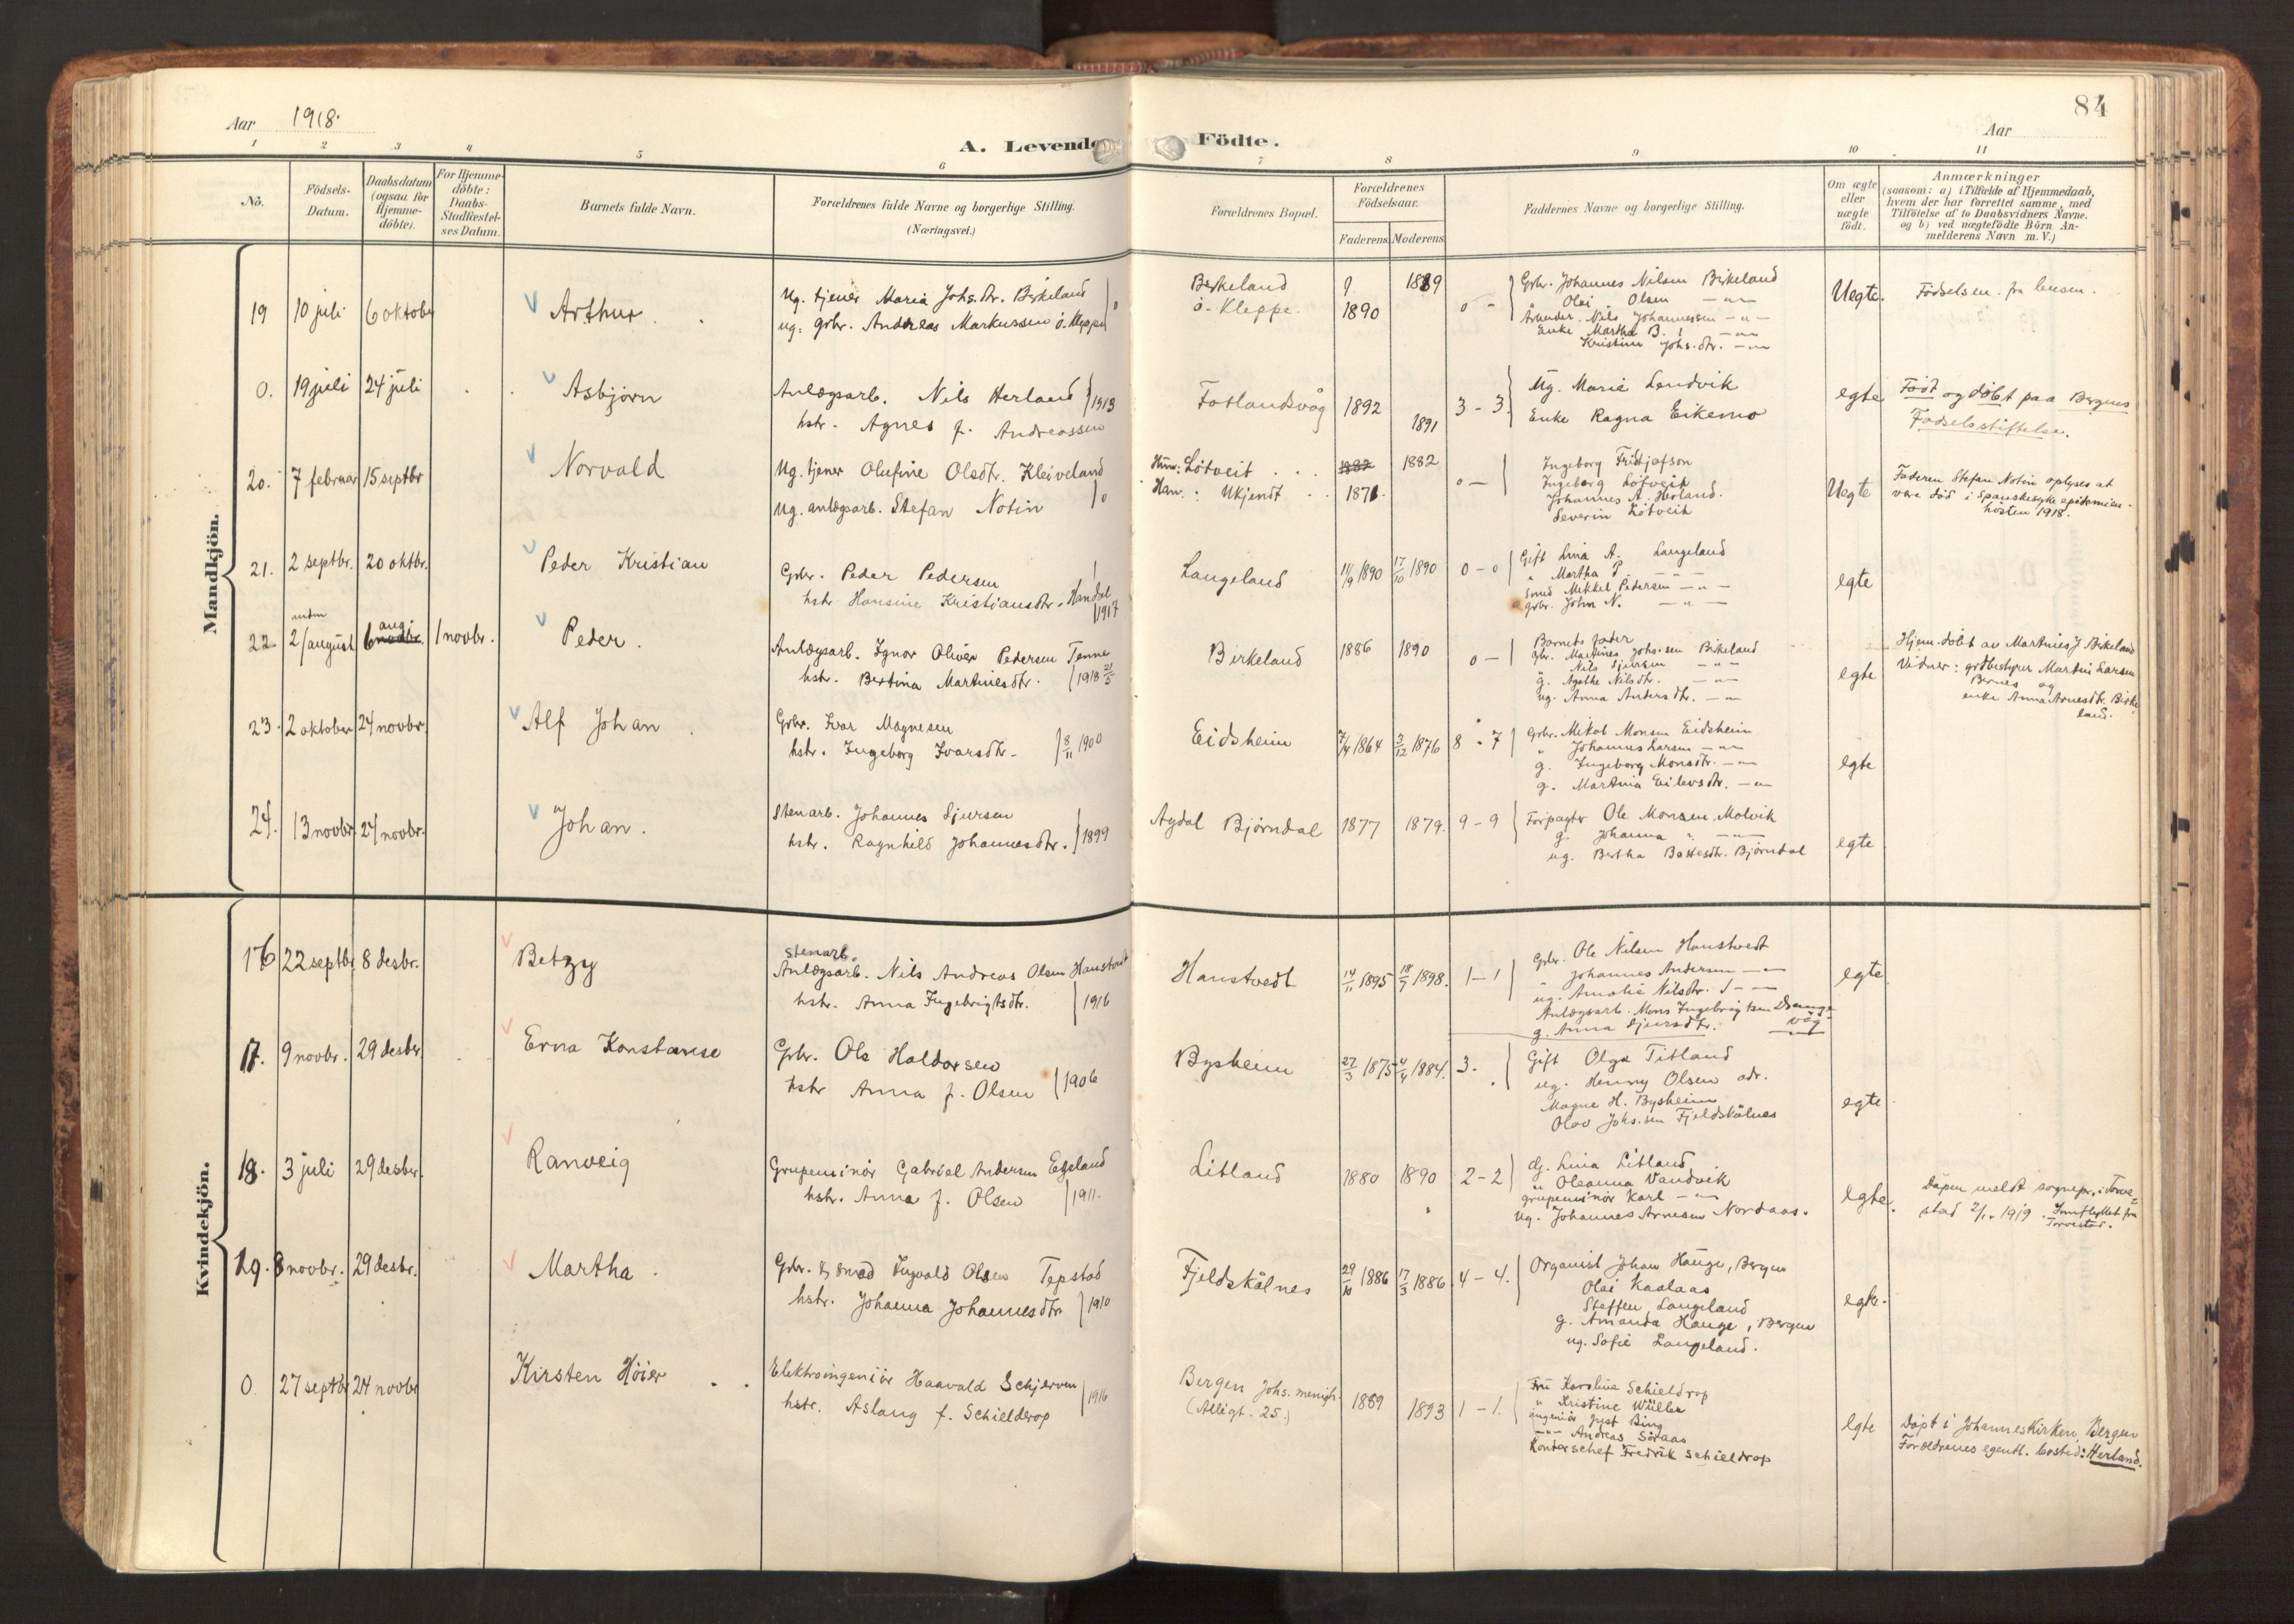 84
Aar 1918.
A. Levende Födte.
Aar
1 2 3 4 5 6 7 8 9 10 11
No.
Födsels-
Datum.
Daabsdatum
(ogsaa for
Hjemme-
döbte).
For Hjemme-
döbte:
Daabs-
Stadfæstel-
ses Datum.
Barnets fulde Navn.
Forældrenes fulde Navne og borgerlige Stilling.
(Næringsvei.)
Forældrenes Bopæl.
Forældrenes
Födselsaar.
Faderens Moderens
Faddernes Navne og borgerlige Stilling.
Om ægte
eller
uægte
födt.
Anmærkninger
(saasom: a) i Tilfælde af Hjemmedaab,
hvem der har forrettet samme, med
Tilföielse af to Daabsvidners Navne.
og b) ved uægtefödte Börn An-
melderens Navn m. V.)
Mandkjön.
19 10 juli 6 oktobr Arthur.
Ug. tjener Maria Johs.dtr. Birkeland
ug. grbr. Andreas Markussen ö. Kleppe
0
Birkeland
ö. Kleppe.
1890 1889
0 -
Grbr. Johannes Nilsen Birkeland
Olai Olsen — " —
Nils Johannessen — " —
Enke Martha B.
Kristine Johs.dtr. — " —
Uegte.
Födselsen. fra lensm.
0. 19 juli 24 juli Asbjörn
Anlægsarb. Nils Herland
hstr. Agnes f. Andreassen
1913
Fotlandsvåg
1892 1891
3 - 3.
Ug. Marie Lendvik
Enke Ragna Eikemo
egte
Födt og döbt paa Bergens
Födselsstiftelse.
20. 7 februar 15 septbr Norvald
Ug. tjener Olufine Olsdtr. Kleiveland
ug. anlægsarb. Stefan Notin
0
Hun: Lötveit
Han: Ukjendt
1882 1882
1871.
0 -
Ingeborg Fridtjofson
Ingeborg Lötveit
Johannes A. Herland.
Severin Lötveit
Uegte
Faderen Stefan Notin oplyses at
vere död i Spanskesyke epidemien
hösten 1918.
21. 2 septbr. 20 oktbr. Peder Kristian
Grbr. Peder Pedersen
hstr. Hansine Kristiansdtr. Handal
1917
Langeland
11/9 1890 17/10 1890
0 - 0
Gift Lina A. Langeland
" Martha P. — " —
Smed Mikkel Pedersen — " —
grbr. John N. — " —
egte
22. 2/ august 6 novbr. augi 1 novbr. Peder.
Anlægsarb. Ignar Oliver Pedersen Tenne
hstr. Bertina Martinesdtr.
1918 21/5
Birkeland
1886 1890
0 -
Barnets fader
gbr. Martines Johs.sen Birkeland
Nils Sjursen — " —
g. Agathe Nilsdtr. — " —
ug. Anna Andersdtr. — " —
egte
Hjem.döbt av Martines J Birkeland
Vidner: grdbestyrer Martin Larsen
Bernes og
enke Anna Arnesdtr. Birke-
land.
23. 2 oktober 24 novbr. Alf Johan
Grbr. Ivar Magnesen
hstr. Ingeborg Ivarsdtr.
8/11 1900
Eidsheim
7/4 1864 3/12 1876
8 - 7
Grbr. Mikal Monsen Eidsheim
" Johannes Larsen — " —
g. Ingeborg Monsdtr. — " —
g. Martina Eilevsdtr. — " —
egte
24. 13 novbr 24 novbr. Johan.
Stenarb. Johannes Sjursen
hstr. Ragnhild Johannesdtr.
1899
Aydal Björndal
1877 1879.
9 - 9
Forpagter Ole Monsen, Molvik
g. Johanna " — " —
ug. Bertha Bastesdtr. Björndal
egte
Kvindekjön.
16 22 septbr 8 desbr. Betzy
Stenarb.
Anlægsarb. Nils Andreas Olsen Hanstvedt
hstr. Anna Ingebrigtsdtr.
1916
Hanstvedt
14/11 1895 18/7 1898.
1 - 1
Grbr. Ole Nilsen Hanstvedt
" Johannes Andersen — " —
ug. Amalie Nilsdtr. — " —
Anlægsarb. Mons Ingebrigtsen Drange-
våg
g. Anna Sjursdtr.
egte
17. 9 novbr. 29 desbr. Erna Konstanse
Grbr. Ole Haldorsen
hstr Anna f. Olsen
1906
Bysheim
27/3 1875 4/4 1884.
3.
Gift Olga Titland
ug. Henny Olsen adr.
Magne H. Bysheim
Olav Johs.sen Fjeldskålnes
egte
18. 3 juli 29 desbr. Ranveig
Grupeminör Gabriel Andersen Egeland
hstr. Anna f. Olsen
1911.
Litland
1880 1890
2 - 2
g. Lina Litland
" Oleanna Vandvik
grupeminör Karl — " —
ug. Johannes Arnesen Nordaas.
egte.
Dåpen meldt sognepr. i Torve-
stad 2/1. 1919. Innflyttet fra
Torvestad.
19. 8 novbr. 29 desbr. Martha.
Grbr. & smed Ingvald Olsen Tepstad
hstr. Johanna Johannesdtr.
1910
Fjeldskålnes
29/10 1886 17/3 1886
4 - 4.
Organist Johan Hauge, Bergen
Olai Kaalaas
Steffen Langeland
g. Amanda Hauge, Bergen
ug. Sofie Langeland.
egte.
0. 27 septbr 24 novbr Kirsten Höier
Elektroingeniör Haavald Schjerven
hstr. Aslaug f. Schieldrop
1916
Bergen Johs. menigh.
(Allégt. 25.)
1889 1893
1 - 1.
Fru Karoline Schieldrop
" Kristine Wüller
ingeniör Just Bing
— " — Andreas Söraas
Kontorschef Fredrik Schieldrop
egte
Döpt i Johanneskirken, Bergen
Foreldrenes egentl. bosted: Herland.